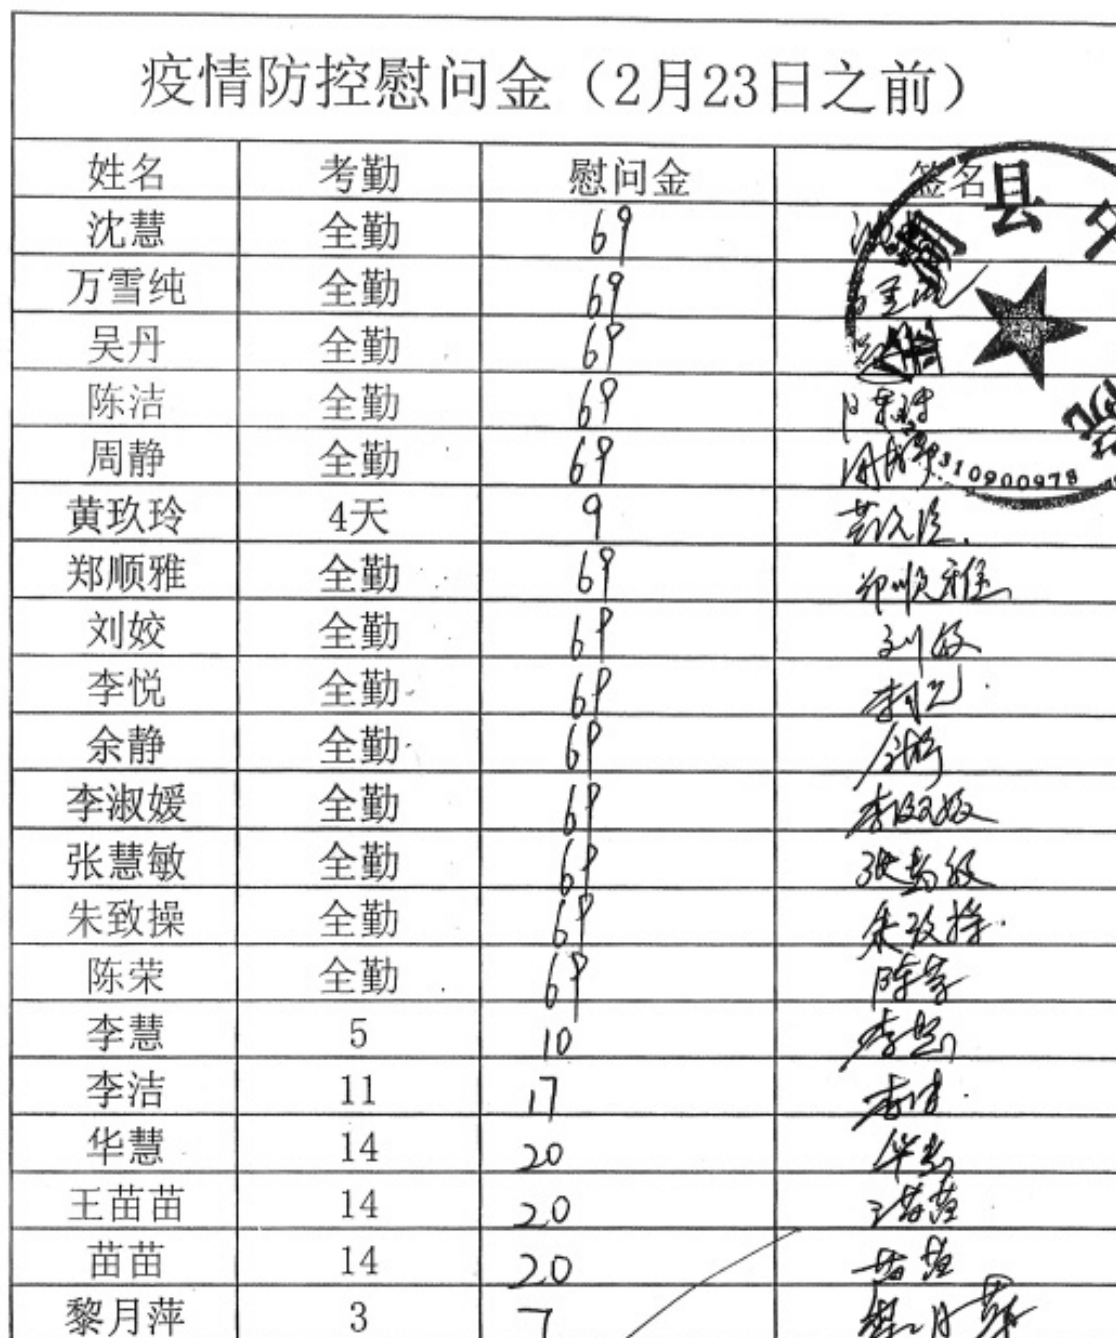 疫情防控慰问金（2月23日之前）
姓名 考勤 慰问金 签名
沈慧 全勤 69
万雪纯 全勤 69
吴丹 全勤 69
陈洁 全勤 69
周静 全勤 69
黄玖玲 4天 9
郑顺雅 全勤 69 郑顺雅
刘姣 全勤 69 刘姣
李悦 全勤 69
余静 全勤 69 余静
李淑媛 全勤 69
张慧敏 全勤 69
朱致操 全勤 69 朱致操
陈荣 全勤 69 陈荣
李慧 5 10 李慧
李洁 11 17 李洁
华慧 14 20 华慧
王苗苗 14 20 王苗苗
苗苗 14 20 苗苗
黎月萍 3 7 黎月萍
县
310900978